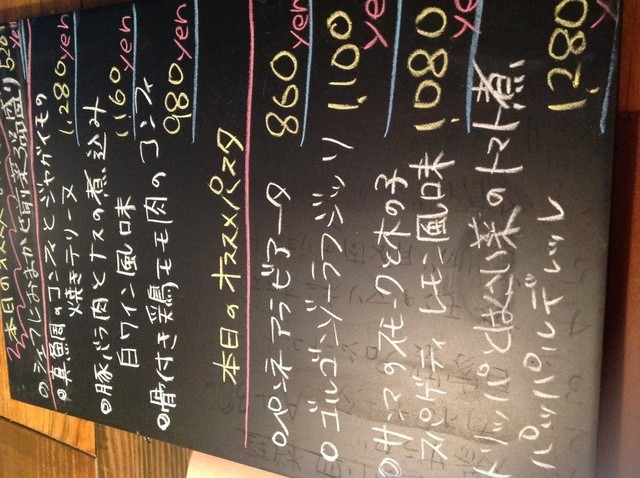 本日のオススメ
●シェフにおまかせ前菜3品盛り
●真鯛のコンフィとジャガイモの
焼きテリーヌ 1,280yen
●豚バラ肉とナスの煮込み
白ワイン風味 1,160yen
●骨付き鶏モモ肉のコンフィ 980yen
本日のオススメパスタ
●ペンネアラビアータ 860yen
●ゴルゴンゾーラフジッリ 1,100yen
●サンマのスモークと木の子
スパゲティ レモン風味 1,080yen
トリッパと 菜のトマト煮
パッパルデッレ 1,280y